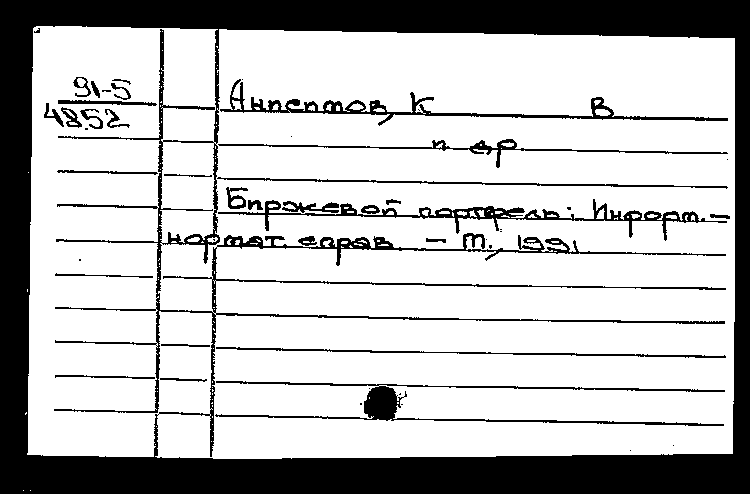 91-5
4852
Анпилтов, К В
и др
Биржевой портфель: Информ.-
нормат. справ. – М., 1991